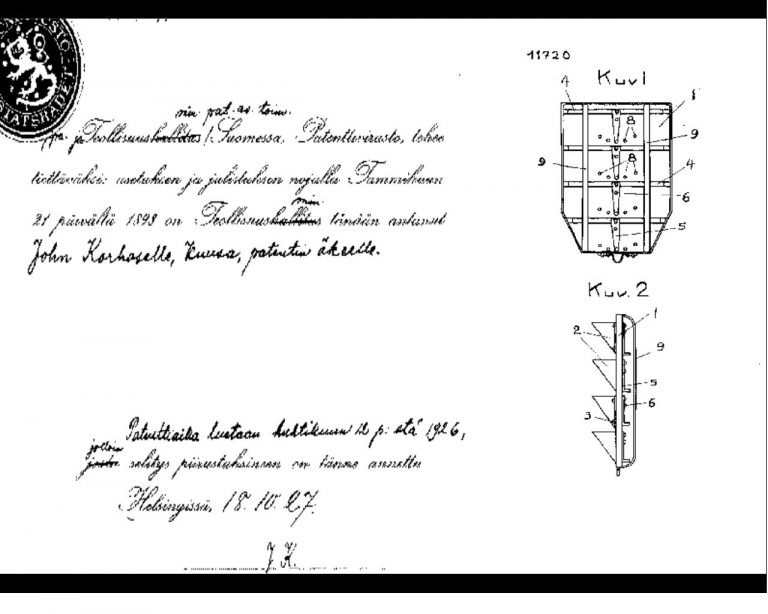 11720
Kuv 1
4
1
8
9
9
8
4
6
5
Kuv. 2
1
2
9
5
6
3
min. pat. as. toim.
ja Teollisuushallitus / Suomessa, Patenttivirasto, tekee
tiettäväksi: asetuksen ja julistuksen nojalla Tammikuun
min
21 päivältä 1898 on Teollisuushallitus tänään antanut
John Korhoselle, Kuusa, patentin äkeelle.
Patenttiaika luetaan huhtikuun 12 p: stä 1926,
jolloin
selitys piirustuksineen on tänne annettu
Helsingissä, 18. 10. 27.
J. K.